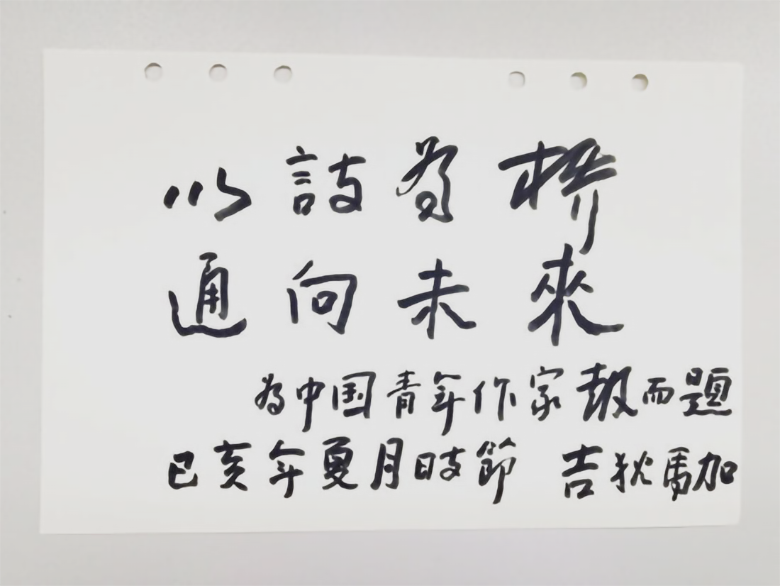 以詩为橋
通向未來
为中国青年作家報而題
己亥年夏月时節 吉狄馬加